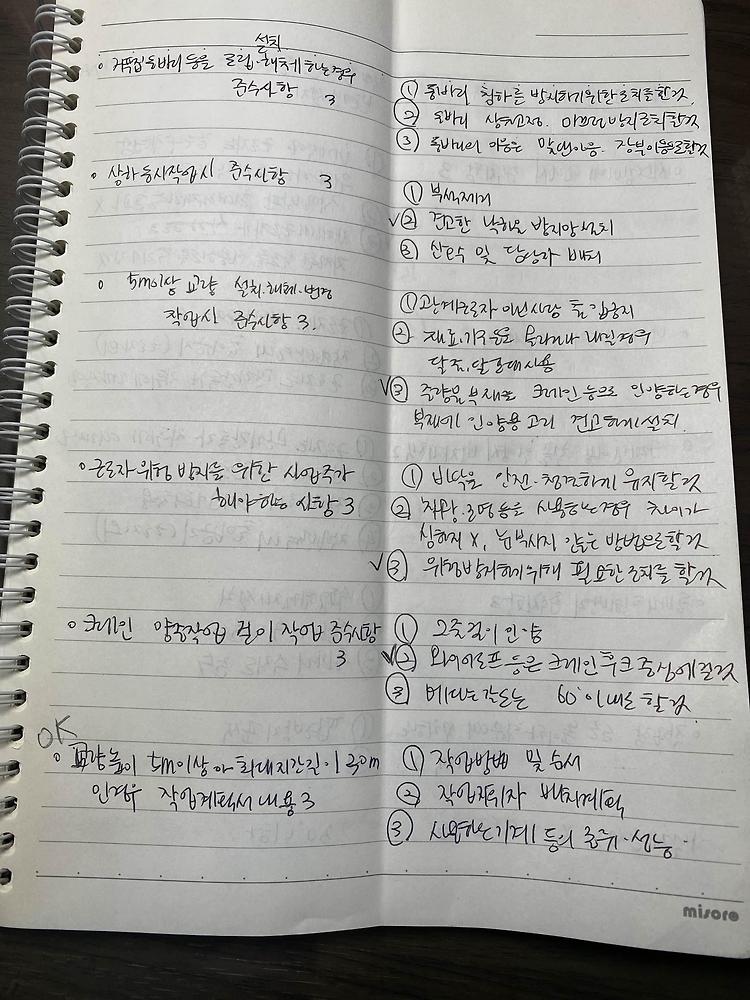 설치
◦ 거푸집 동바리 등을 조립·해체 하는 경우
준수사항 3
① 동바리 침하를 방지하기 위한 조치를 할것
② 동바리 상하고정, 미끄러짐 방지조치 할것
③ 동바리의 이음은 맞댄이음, 장부이음으로 할것
◦ 상하 동시작업시 준수사항 3
① 부석제거
✓② 견고한 낙하물 방지망 설치
③ 신호수 및 담당자 배치
◦ 5m이상 교량 설치·해체·변경
작업시 준수사항 3.
① 관계근로자 아닌사람 출입금지
② 재료, 기구등을 올리거나 내릴경우
달줄, 달포대 사용
✓③ 중량물 부재를 크레인 등으로 인양하는 경우
부재에 인양용 고리 견고하게 설치
◦ 근로자 위험 방지를 위한 사업주가
해야하는 사항 3
① 바닥을 안전·청결하게 유지할것
② 채광, 조명 등을 사용하는 경우 차이가
심하지 X, 눈부시지 않는 방법으로 할것
✓③ 위험방지하기위해 필요한 조치를 할것
◦ 크레인 양중작업 걸이 작업 준수사항
3
① 2줄걸이 인양
✓② 와이어로프 등은 크레인 후크 중심에 걸것
③ 매다는 각도는 60° 이내로 할것
OK
◦ 교량높이 5m이상 or 최대지간길이 30m
인경우 작업계획서 내용 3
① 작업방법 및 순서
② 작업지휘자 배치계획
③ 사용하는 기계 등의 종류·성능
misore